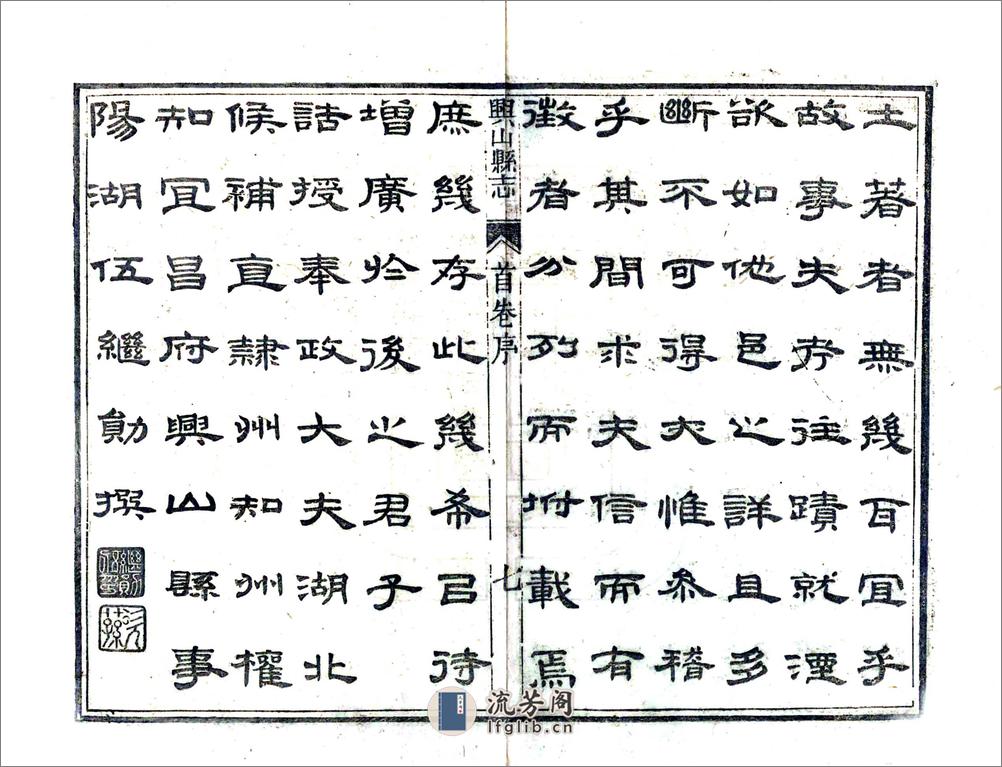 土著者無幾百宜乎
故事夫考往蹟就湮
欲如他邑之詳且多
斷不可得矣惟參稽
乎其間求夫信而有
徵者分列而坿載焉
興山縣志 首卷序 七
庶幾存此幾希㠯待
增廣於後之君子
誥授奉政大夫湖北
候補直隸州知州權
知宜昌府興山縣事
陽湖伍繼勛撰
流芳阁
lfglib.cn